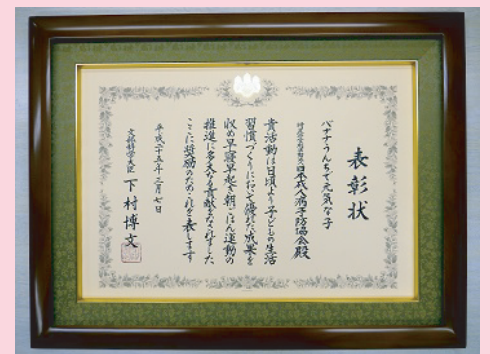 表彰状
バナナうんちで元気な子
特定非営利活動法人日本成人病予防協会殿
貴活動は日頃より子どもの生活
習慣づくりにおいて優れた成果を
収め早寝早起き朝ごはん運動の
推進に多大な貢献をされました
ここに奨励のためこれを表します
平成二十五年三月七日
文部科学大臣 下村博文